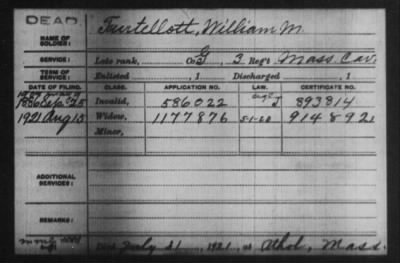 DEAD.
NAME OF SOLDIER: Furtellott, William M.
SERVICE: Late rank, Co. G, 3 Reg't Mass. Cav.
TERM OF SERVICE: Enlisted , 1 Discharged , 1
DATE OF FILING. CLASS. APPLICATION NO. LAW. CERTIFICATE NO.
1886 Sep 25 Invalid, 586022 893814
1921 Aug 15 Widow, 1177876 5-1-20 914892
Minor,
ADDITIONAL SERVICES:
REMARKS:
Died July 21, 1921, at Athol, Mass.